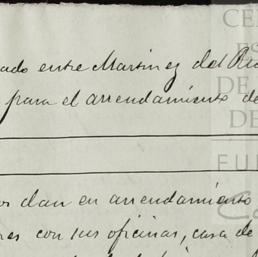 ado entre Martinez del Rio
para el arrendamiento de
os dan en arrendamiento
res con sus oficinas, casa de